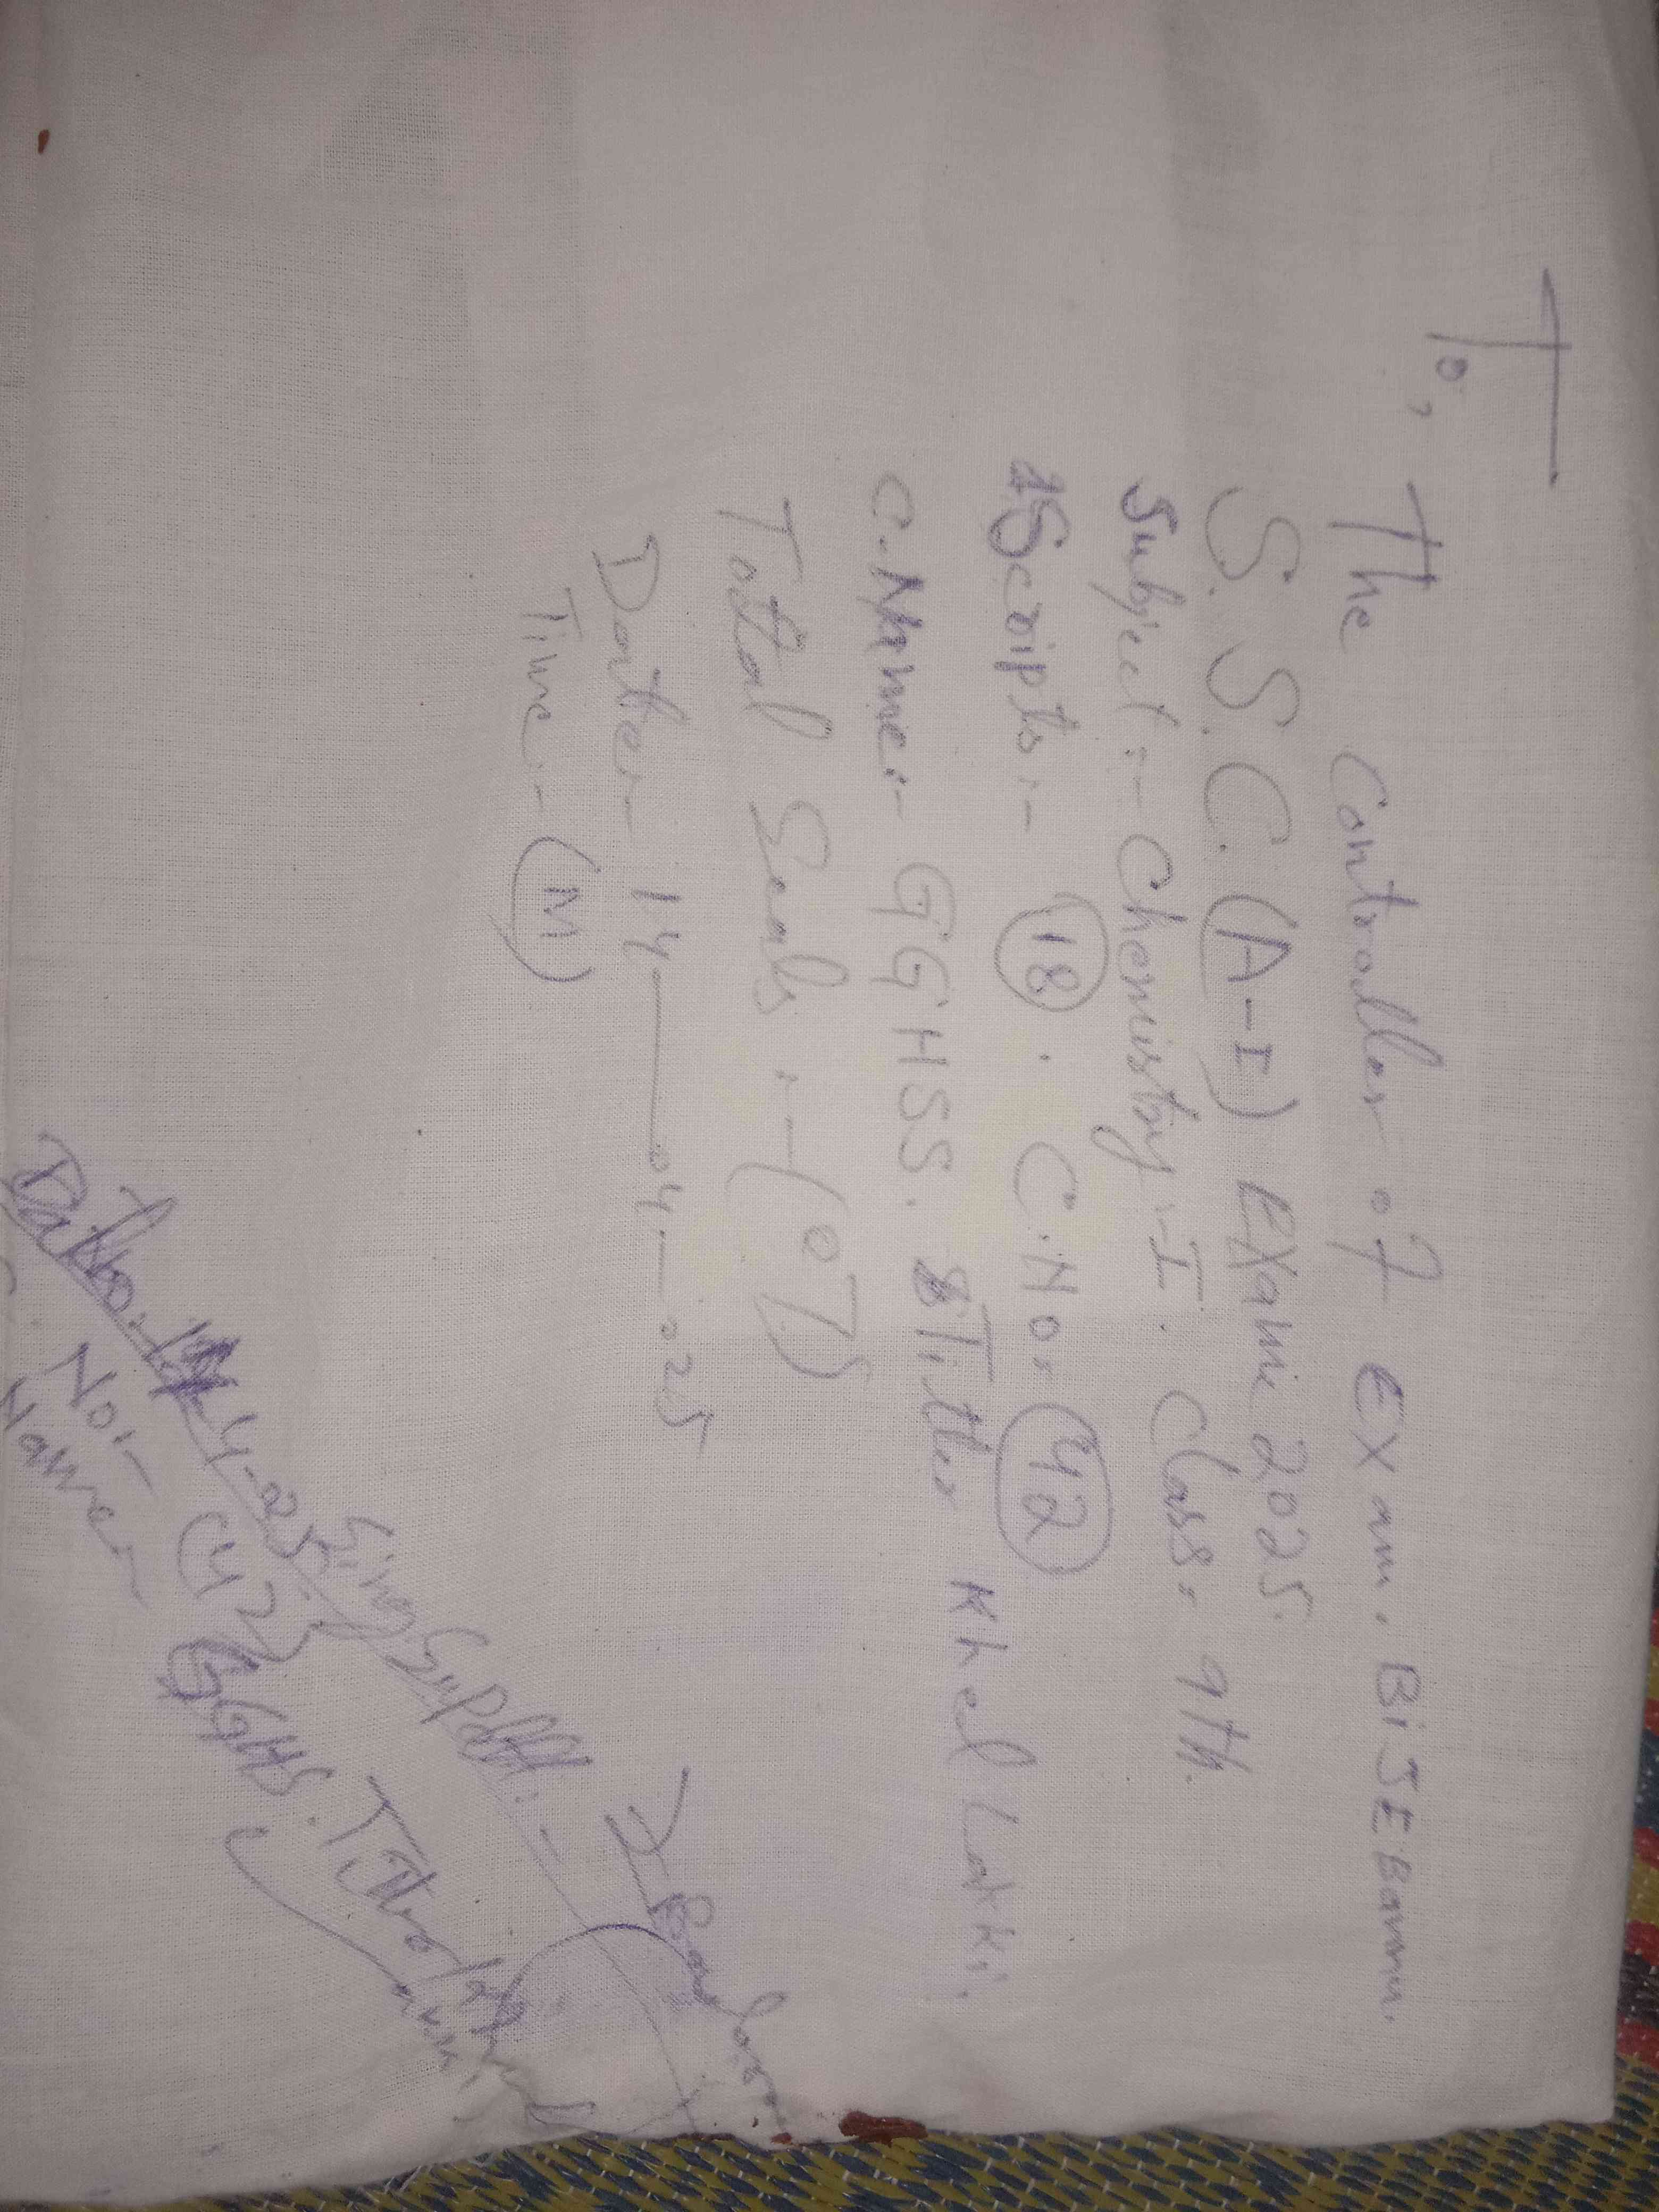 To,
The Controller of EXam. BiSE Bannu.
S.S.C.(A-I) EXami 2025
Subject:- Chemistry-I. Class:- 9th.
Scripts:- 18. C.No:- 42
C.Name:- GGHSS. Titter Khel Lakki.
Total Seals:- (07)
Date:- 14—04—025
Time:- (M)
Sing Supdtt:-
Date:- 14-4-025
No:- (42)
Name:- GGHS. Titter